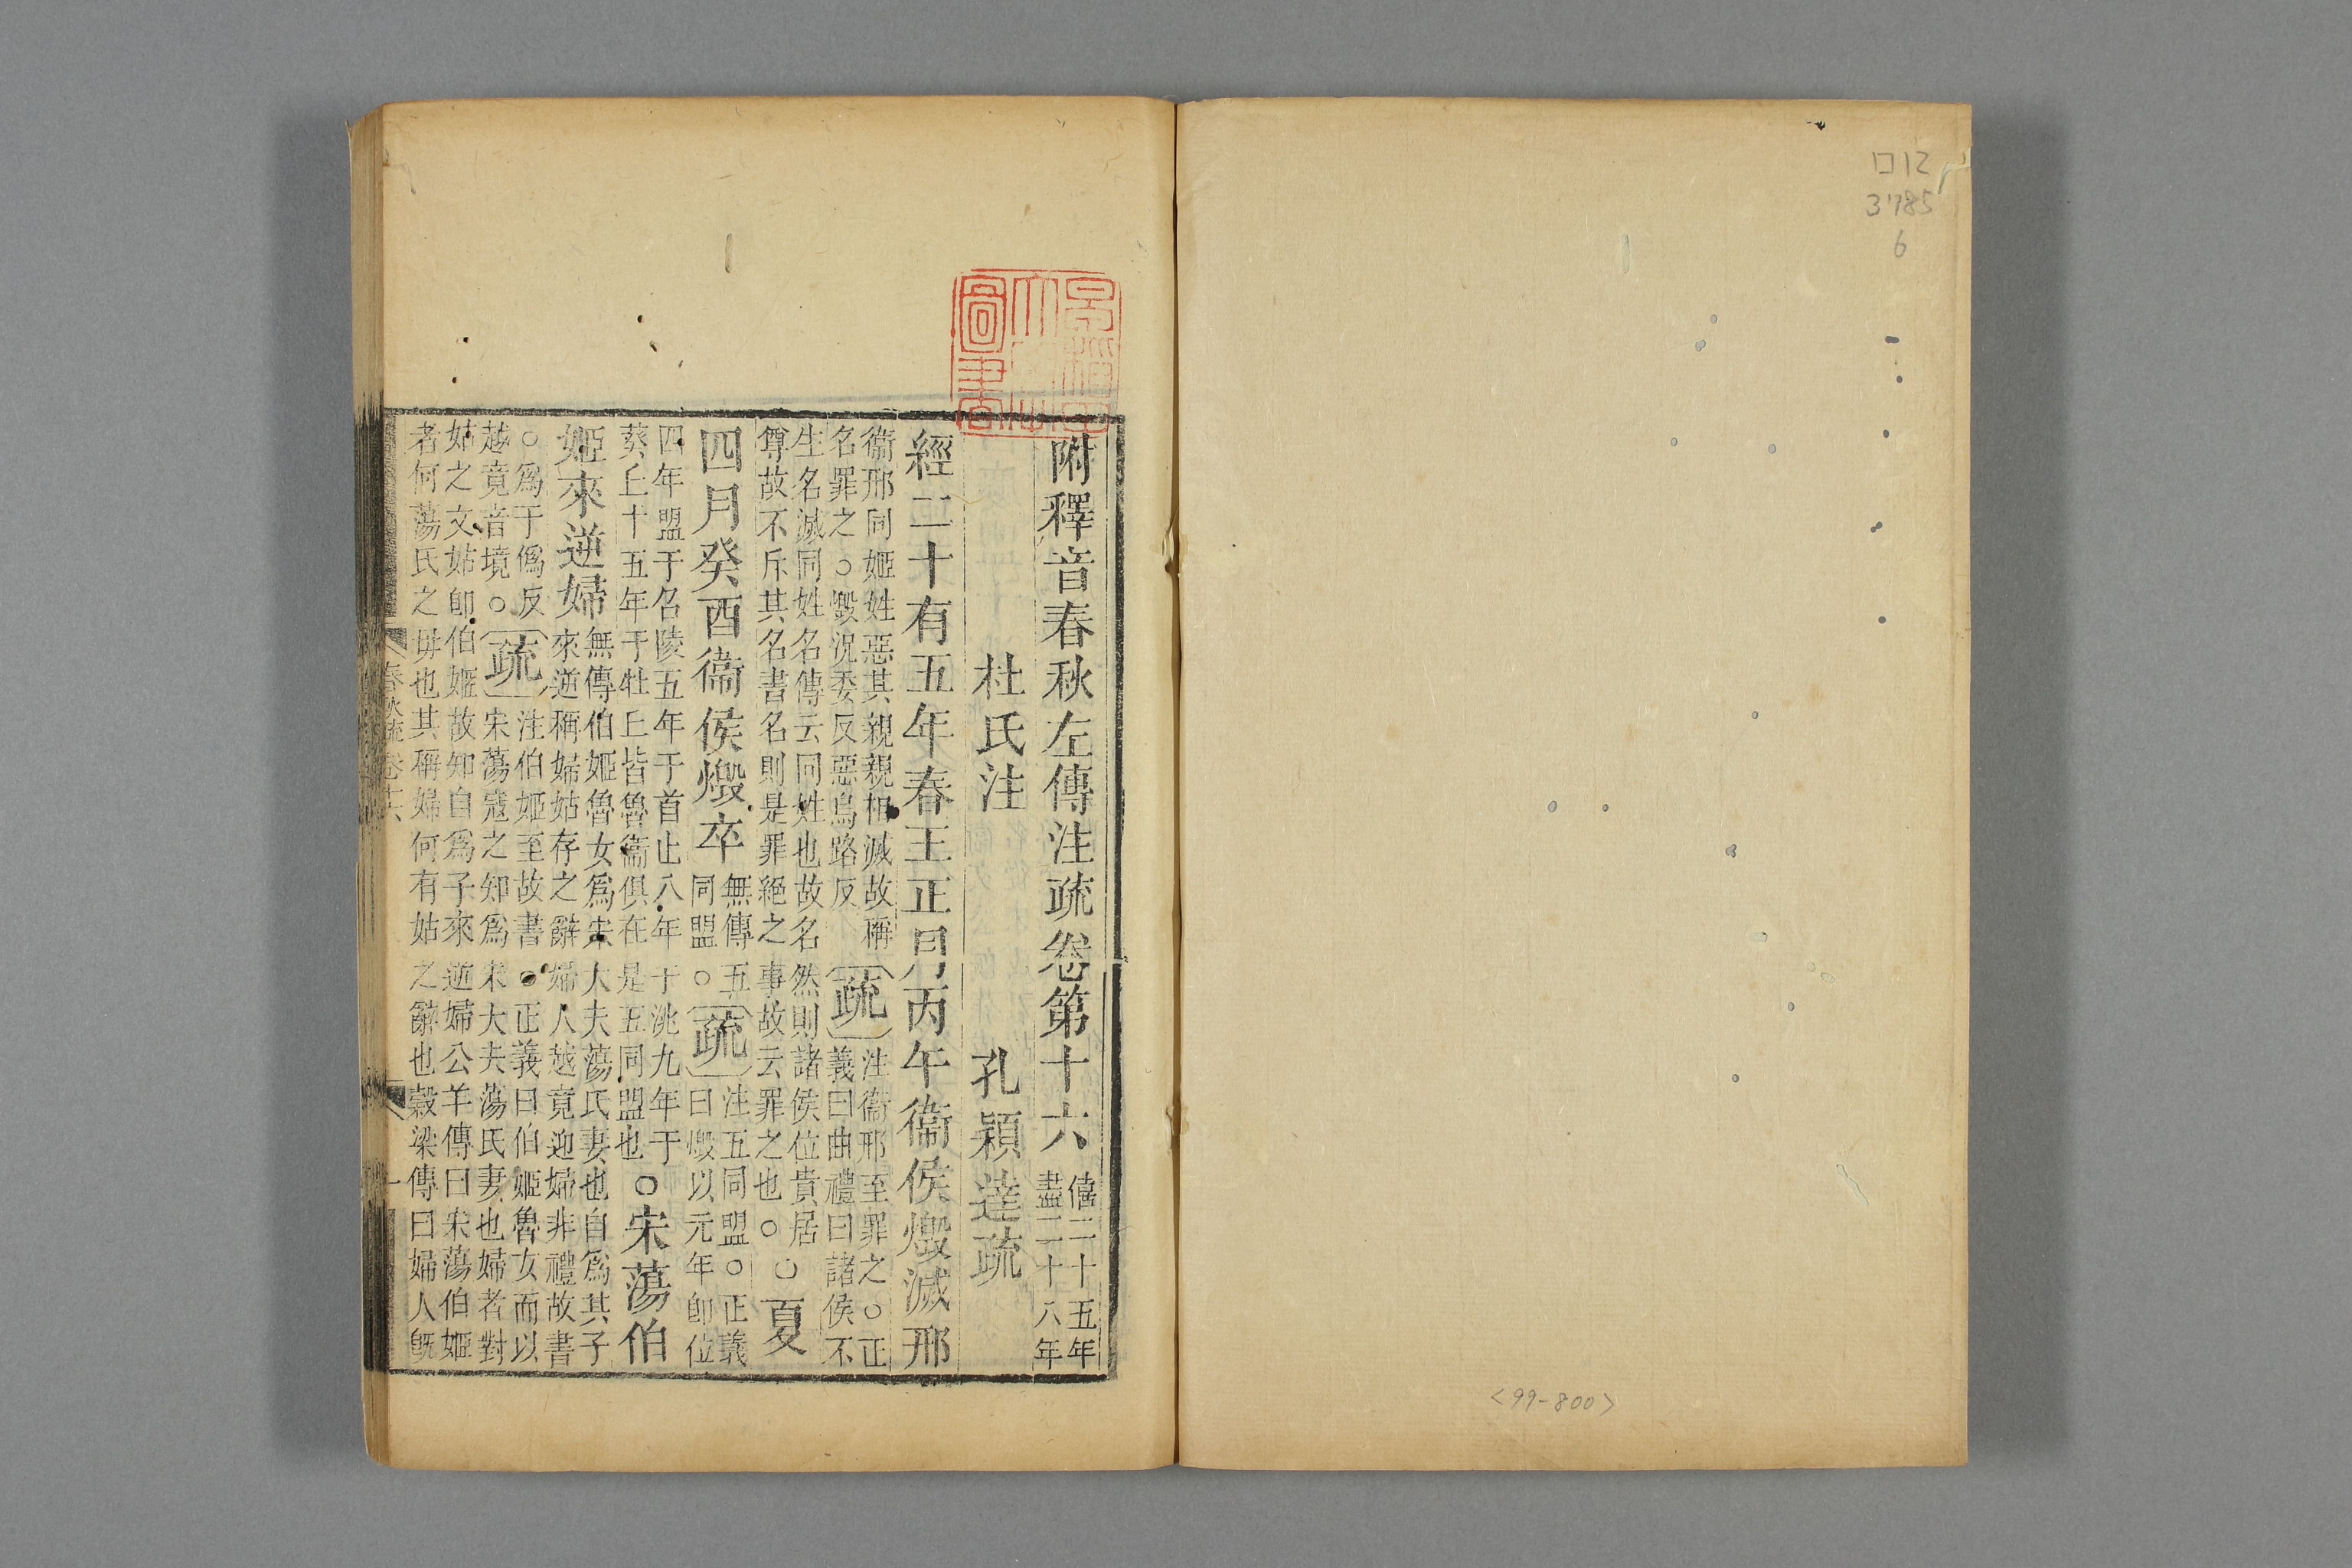 口12
3785
6
<99-800>
附釋音春秋左傳注疏卷第十六
僖二十五年
盡二十八年
杜氏注 孔穎達疏
經二十有五年春王正月丙午衞侯燬滅邢
衞邢同姬姓惡其親親相滅故稱
名罪之○燬況委反惡烏路反
疏
注衞邢至罪之○正
義曰曲禮曰諸侯不
生名滅同姓名傳云同姓也故名然則諸侯位貴居
尊故不斥其名書名則是罪絕之事故云罪之也○
○夏
四月癸酉衞侯燬卒
無傳五
同盟○
疏
注五同盟○正義
曰燬以元年卽位
四年盟于召陵五年于首止八年于洮九年于
葵丘十五年于牡丘皆魯衞俱在是五同盟也
○宋蕩伯
姬來逆婦
無傳伯姬魯女爲宋大夫蕩氏妻也自爲其子
來逆稱婦姑存之辭婦人越竟迎婦非禮故書
○爲于僞反
越竟音境○
疏
注伯姬至故書○正義曰伯姬魯女而以
宋蕩寇之知爲宋大夫蕩氏妻也婦者對
姑之文姑卽伯姬故知自爲子來逆婦公羊傳曰宋蕩伯姬
者何蕩氏之母也其稱婦何有姑之辭也穀梁傳曰婦人旣
春秋疏卷十六
一